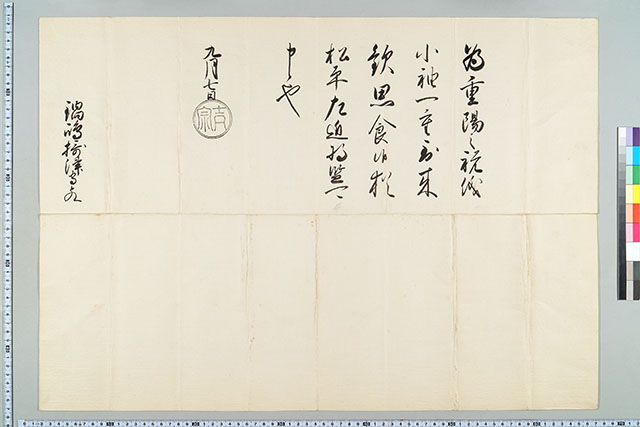 為重陽之祝儀
小袖一重到来
歓思食候猶
松平左近将監可
申候也
九月七日
吉宗
鍋嶋摂津守とのへ